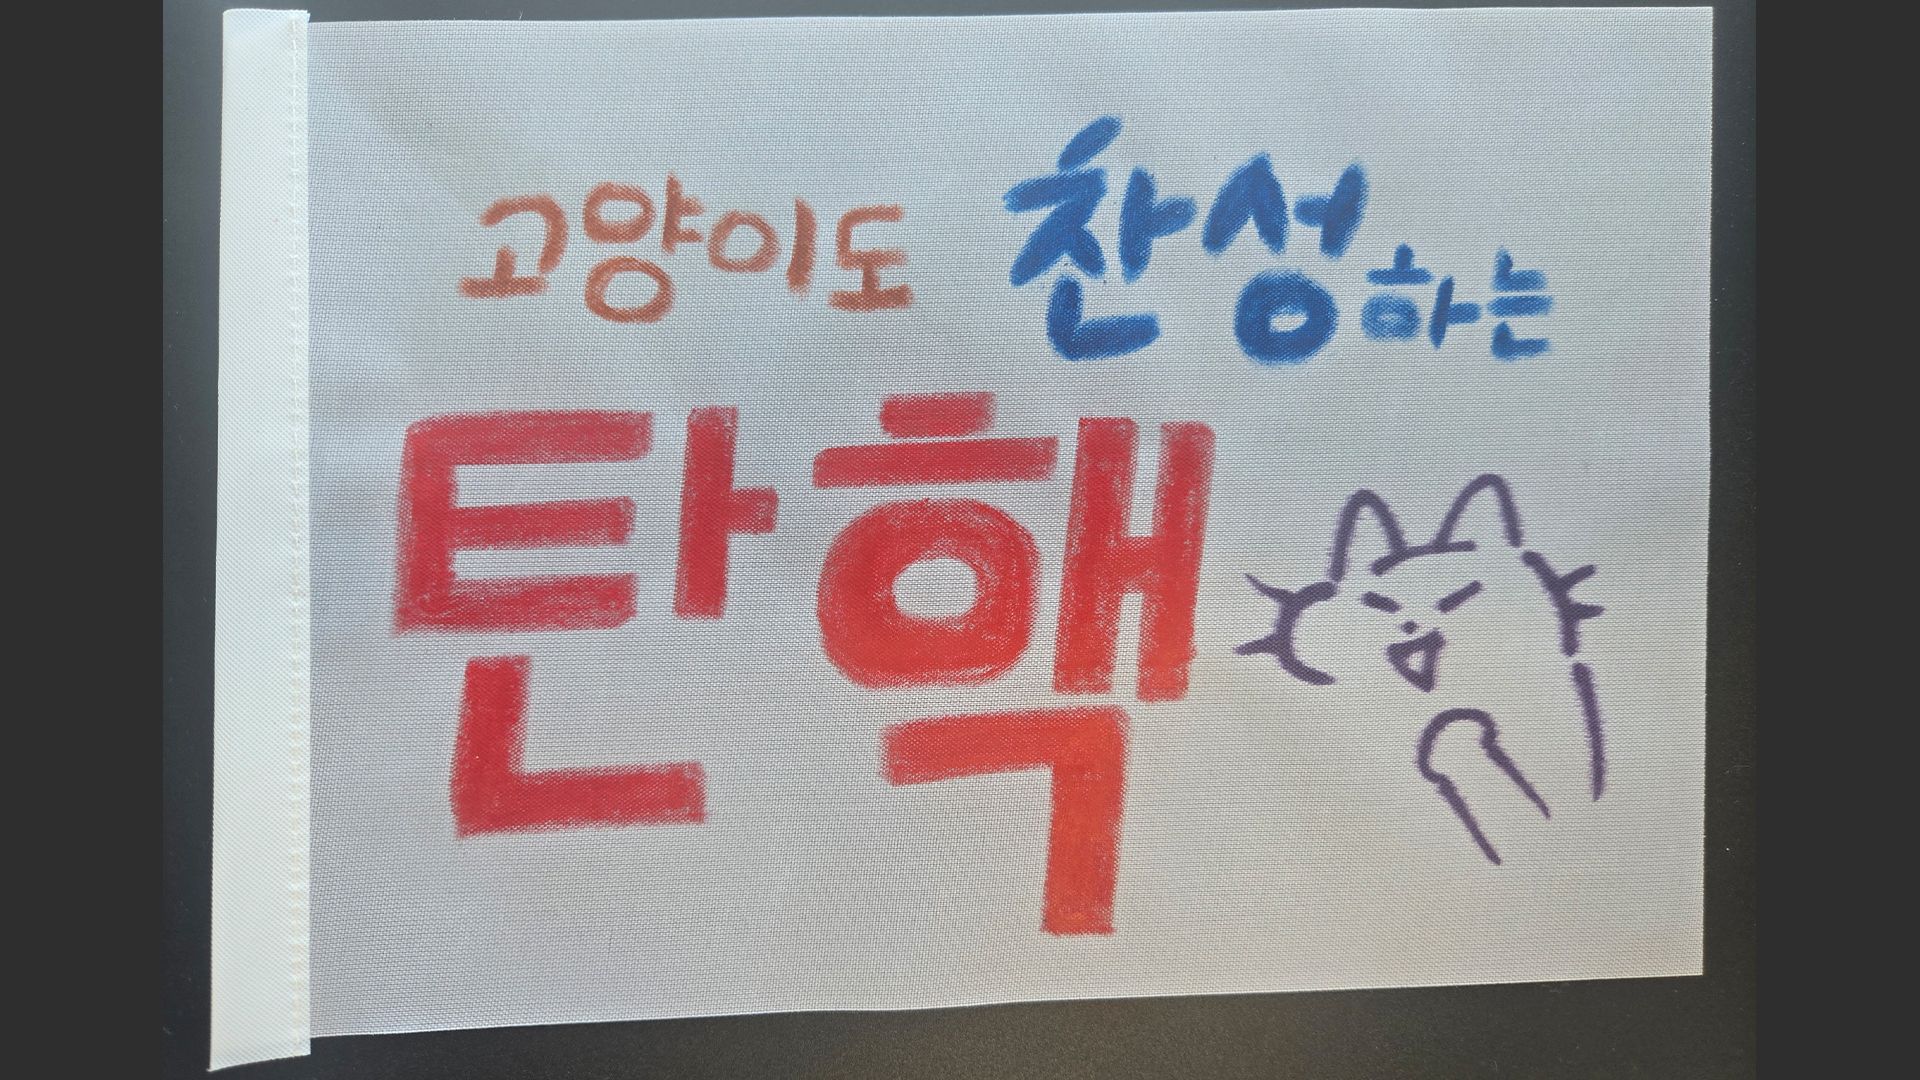 고양이도 찬성하는
탄핵